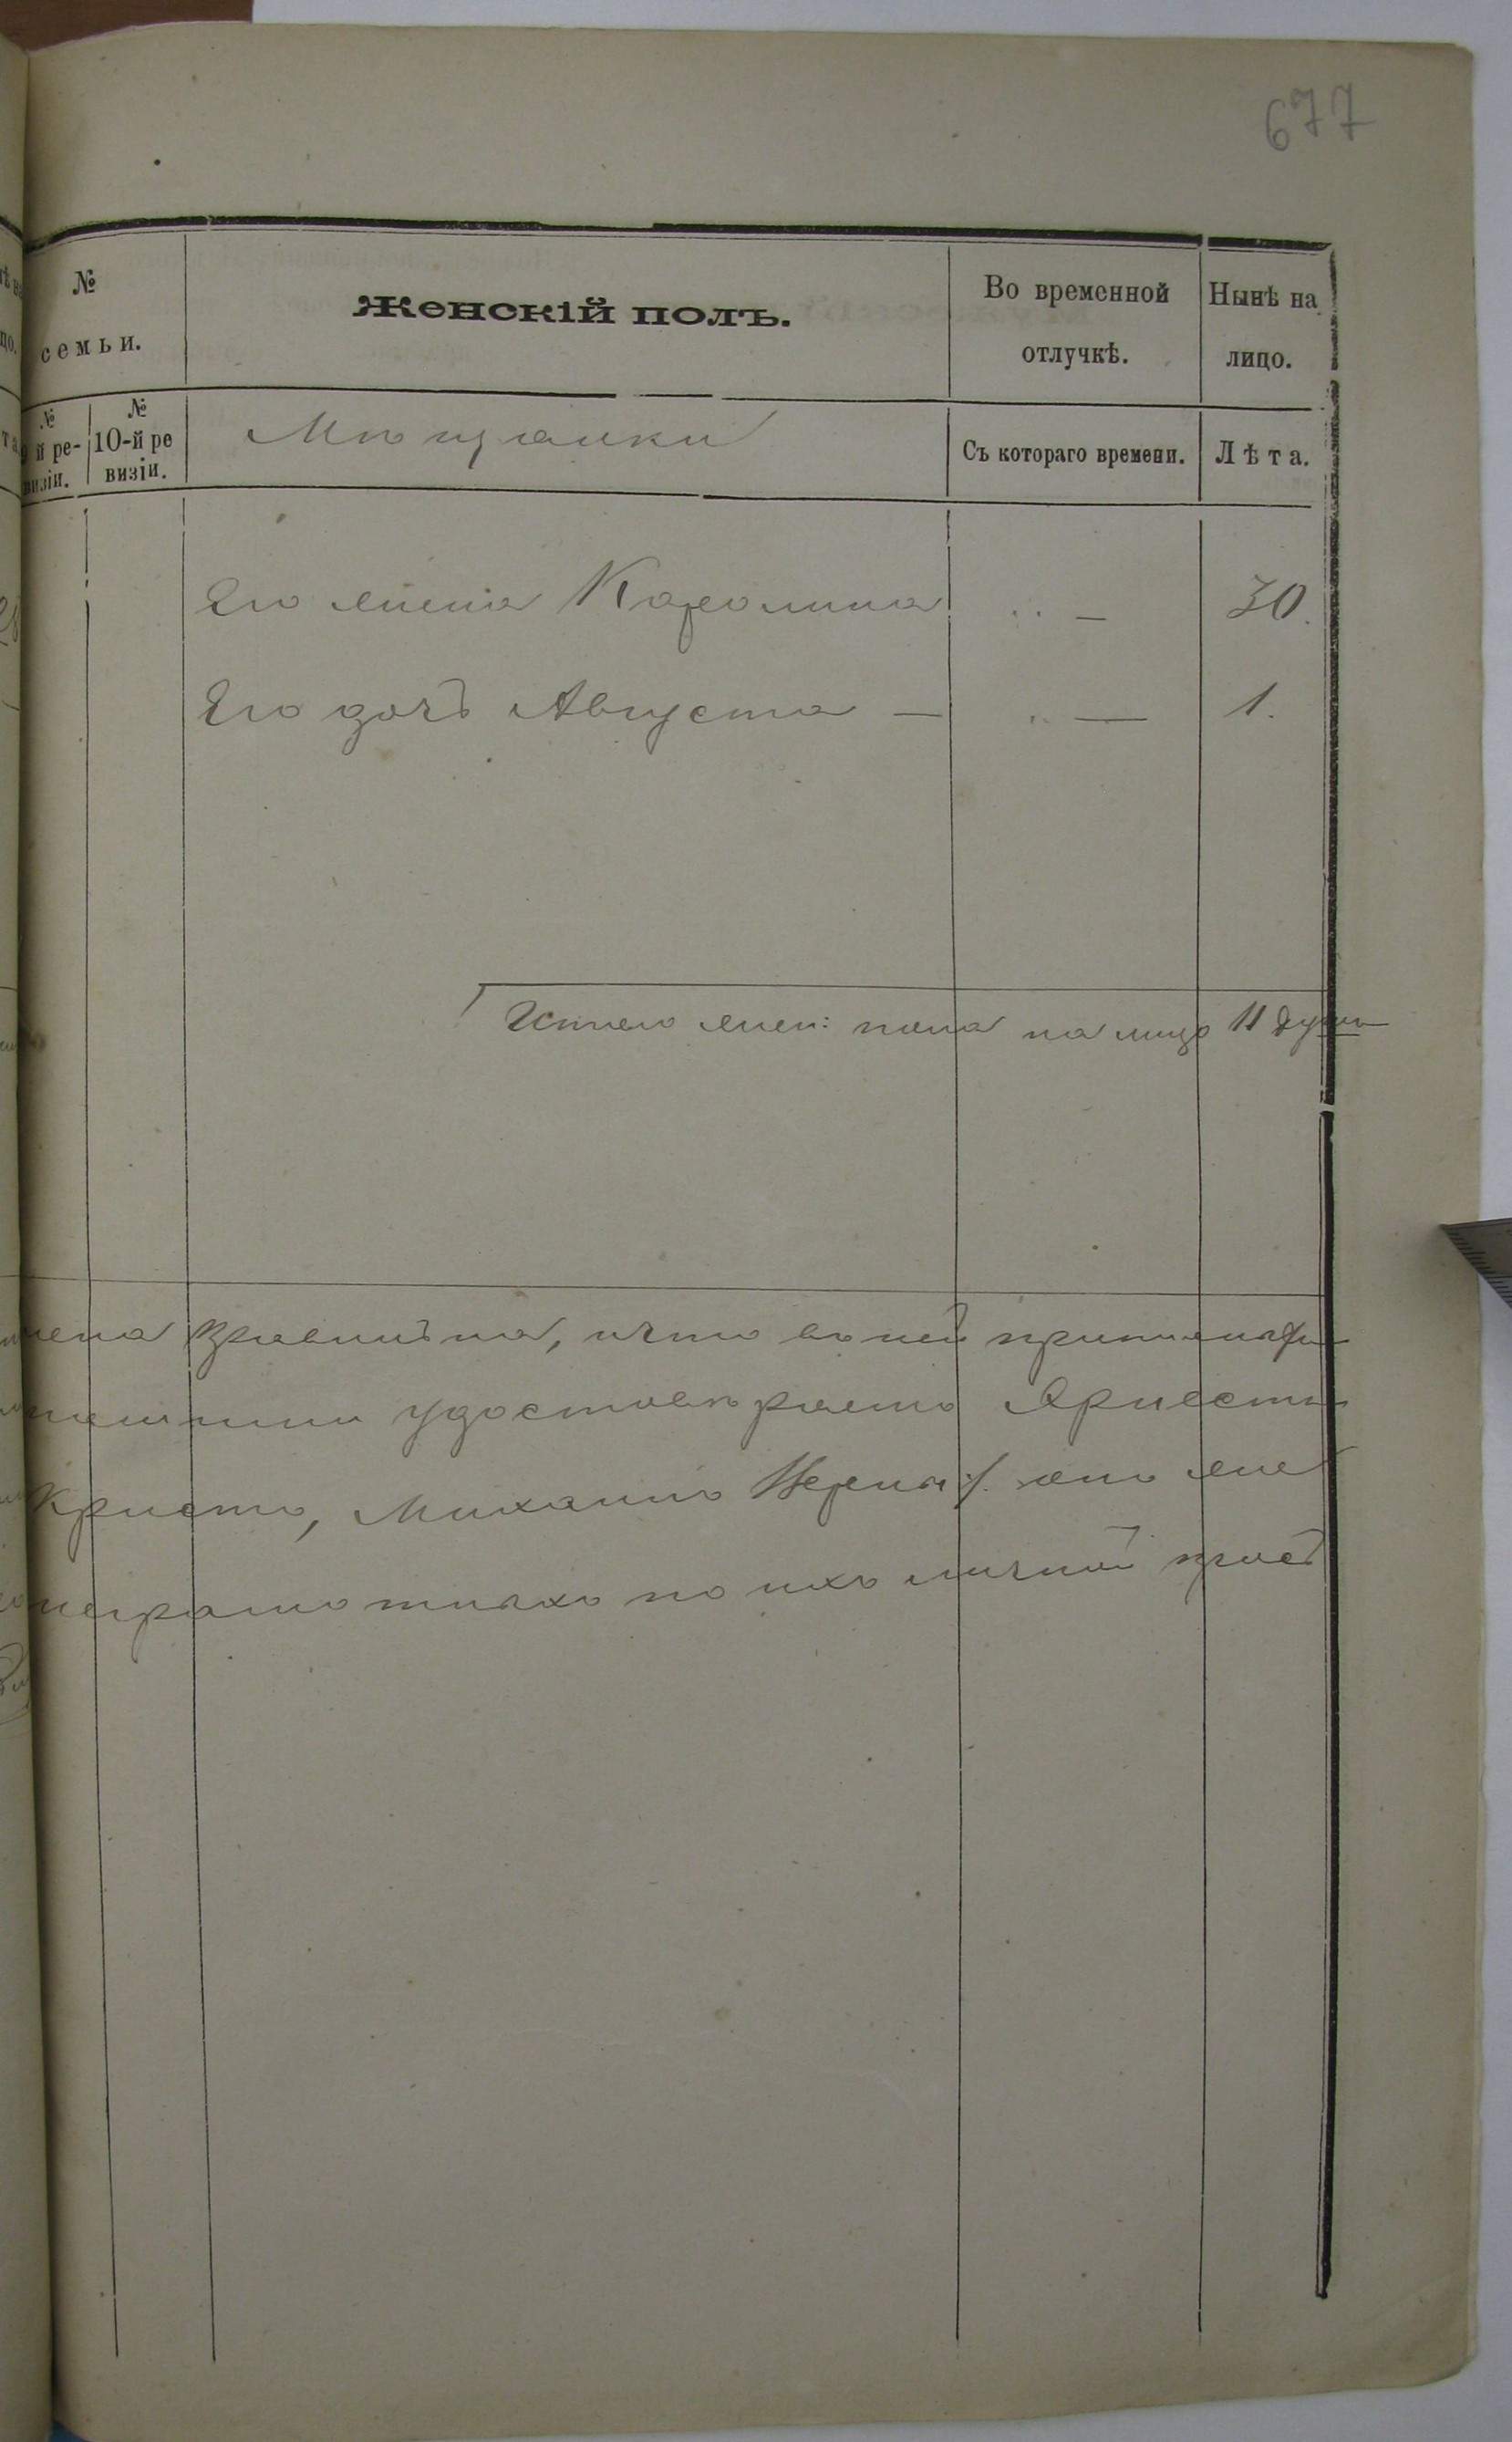 677
№ семьи.
Женскій полъ.
Во временной отлучкѣ.
Нынѣ на лицо.
й ре-визіи.
№ 10-й ре визіи.
Мѣщанки
Съ котораго времени.
Лѣта.
Его жена Каролина „ — 30.
Его дочь Августа — „ — 1.
Итого жен: пола на лицо 11 душъ
ревизіи, и что въ ней
удостовѣряемъ
Кристъ, Михаилъ
неграмотныхъ по ихъ личной прось